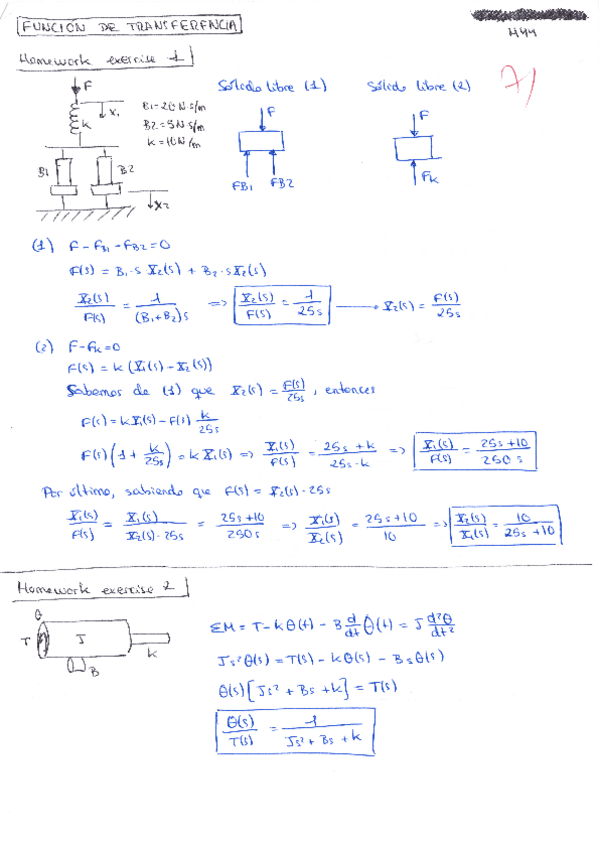 FUNCIÓN DE TRANSFERENCIA
Homework exercise 1
7
F
x1
k
B1
B2
x2
B1=20 N·s/m
B2=5 N·s/m
k=10 N/m
Sólido libre (1)
F
FB1 FB2
Sólido libre (2)
F
Fk
(1) F-FB1-FB2=0
F(s) = B1·s X2(s) + B2·s X2(s)
X2(s)/F(s) = 1/((B1+B2)s) => X2(s)/F(s) = 1/25s → X2(s) = F(s)/25s
(2) F-Fk=0
F(s) = k (X1(s)-X2(s))
Sabemos de (1) que X2(s) = F(s)/25s, entonces
F(s) = kX1(s) - F(s) k/25s
F(s)(1 + k/25s) = k X1(s) => X1(s)/F(s) = 25s + k/25s·k => X1(s)/F(s) = 25s+10/250s
Por último, sabiendo que F(s) = X2(s)·25s
X1(s)/F(s) = X1(s)/X2(s)·25s = 25s+10/250s => X1(s)/X2(s) = 25s+10/10 => X2(s)/X1(s) = 10/25s+10
Homework exercise 2
θ
T
J
k
B
ΣM = T - kθ(t) - B d/dt θ(t) = J d²θ/dt²
Js²θ(s) = T(s) - kθ(s) - Bsθ(s)
θ(s)[Js² + Bs + k] = T(s)
θ(s)/T(s) = 1/Js² + Bs + k